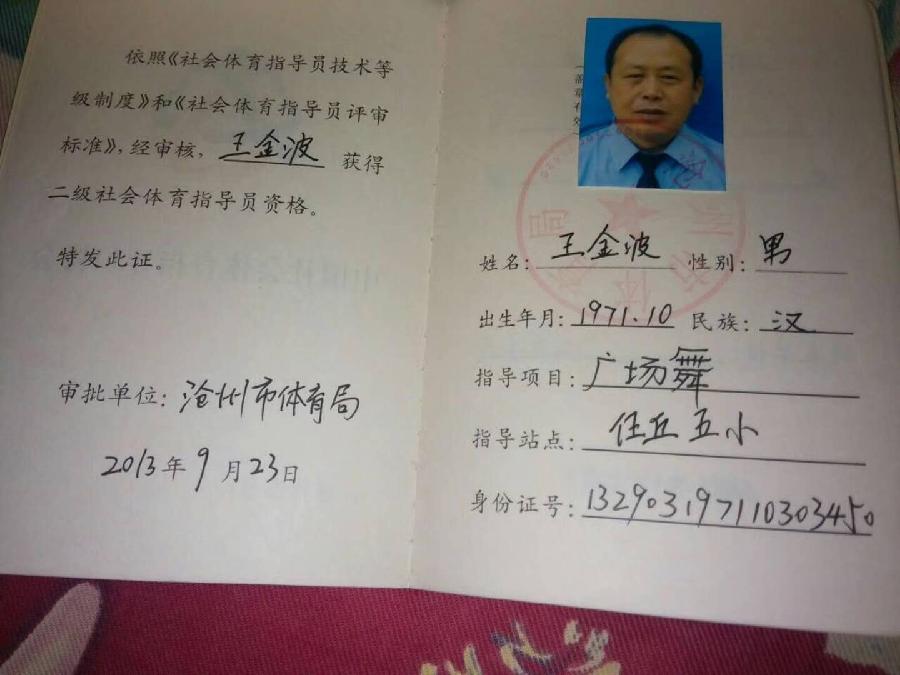 依照《社会体育指导员技术等
级制度》和《社会体育指导员评审
标准》，经审核，王金波 获得
二级社会体育指导员资格。
特发此证。
审批单位：沧州市体育局
2013年9月23日
姓名：王金波 性别：男
出生年月：1971.10 民族：汉
指导项目：广场舞
指导站点：任丘五小
身份证号：132903197110303450